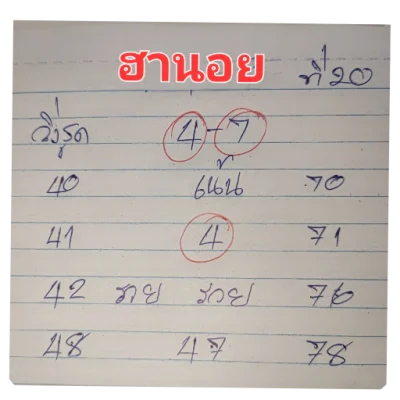 ฮานอย ที่ 20
วิ่งรูด 4-7
40 เน้น 70
41 4 71
42 รวย รวย 76
48 47 78